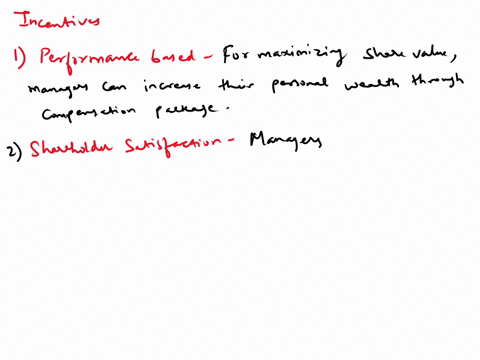 Incentives
1) Performance based - For maximizing share value,
managers can increase their personal wealth through
compensation package.
2) Shareholder Satisfaction - Managers